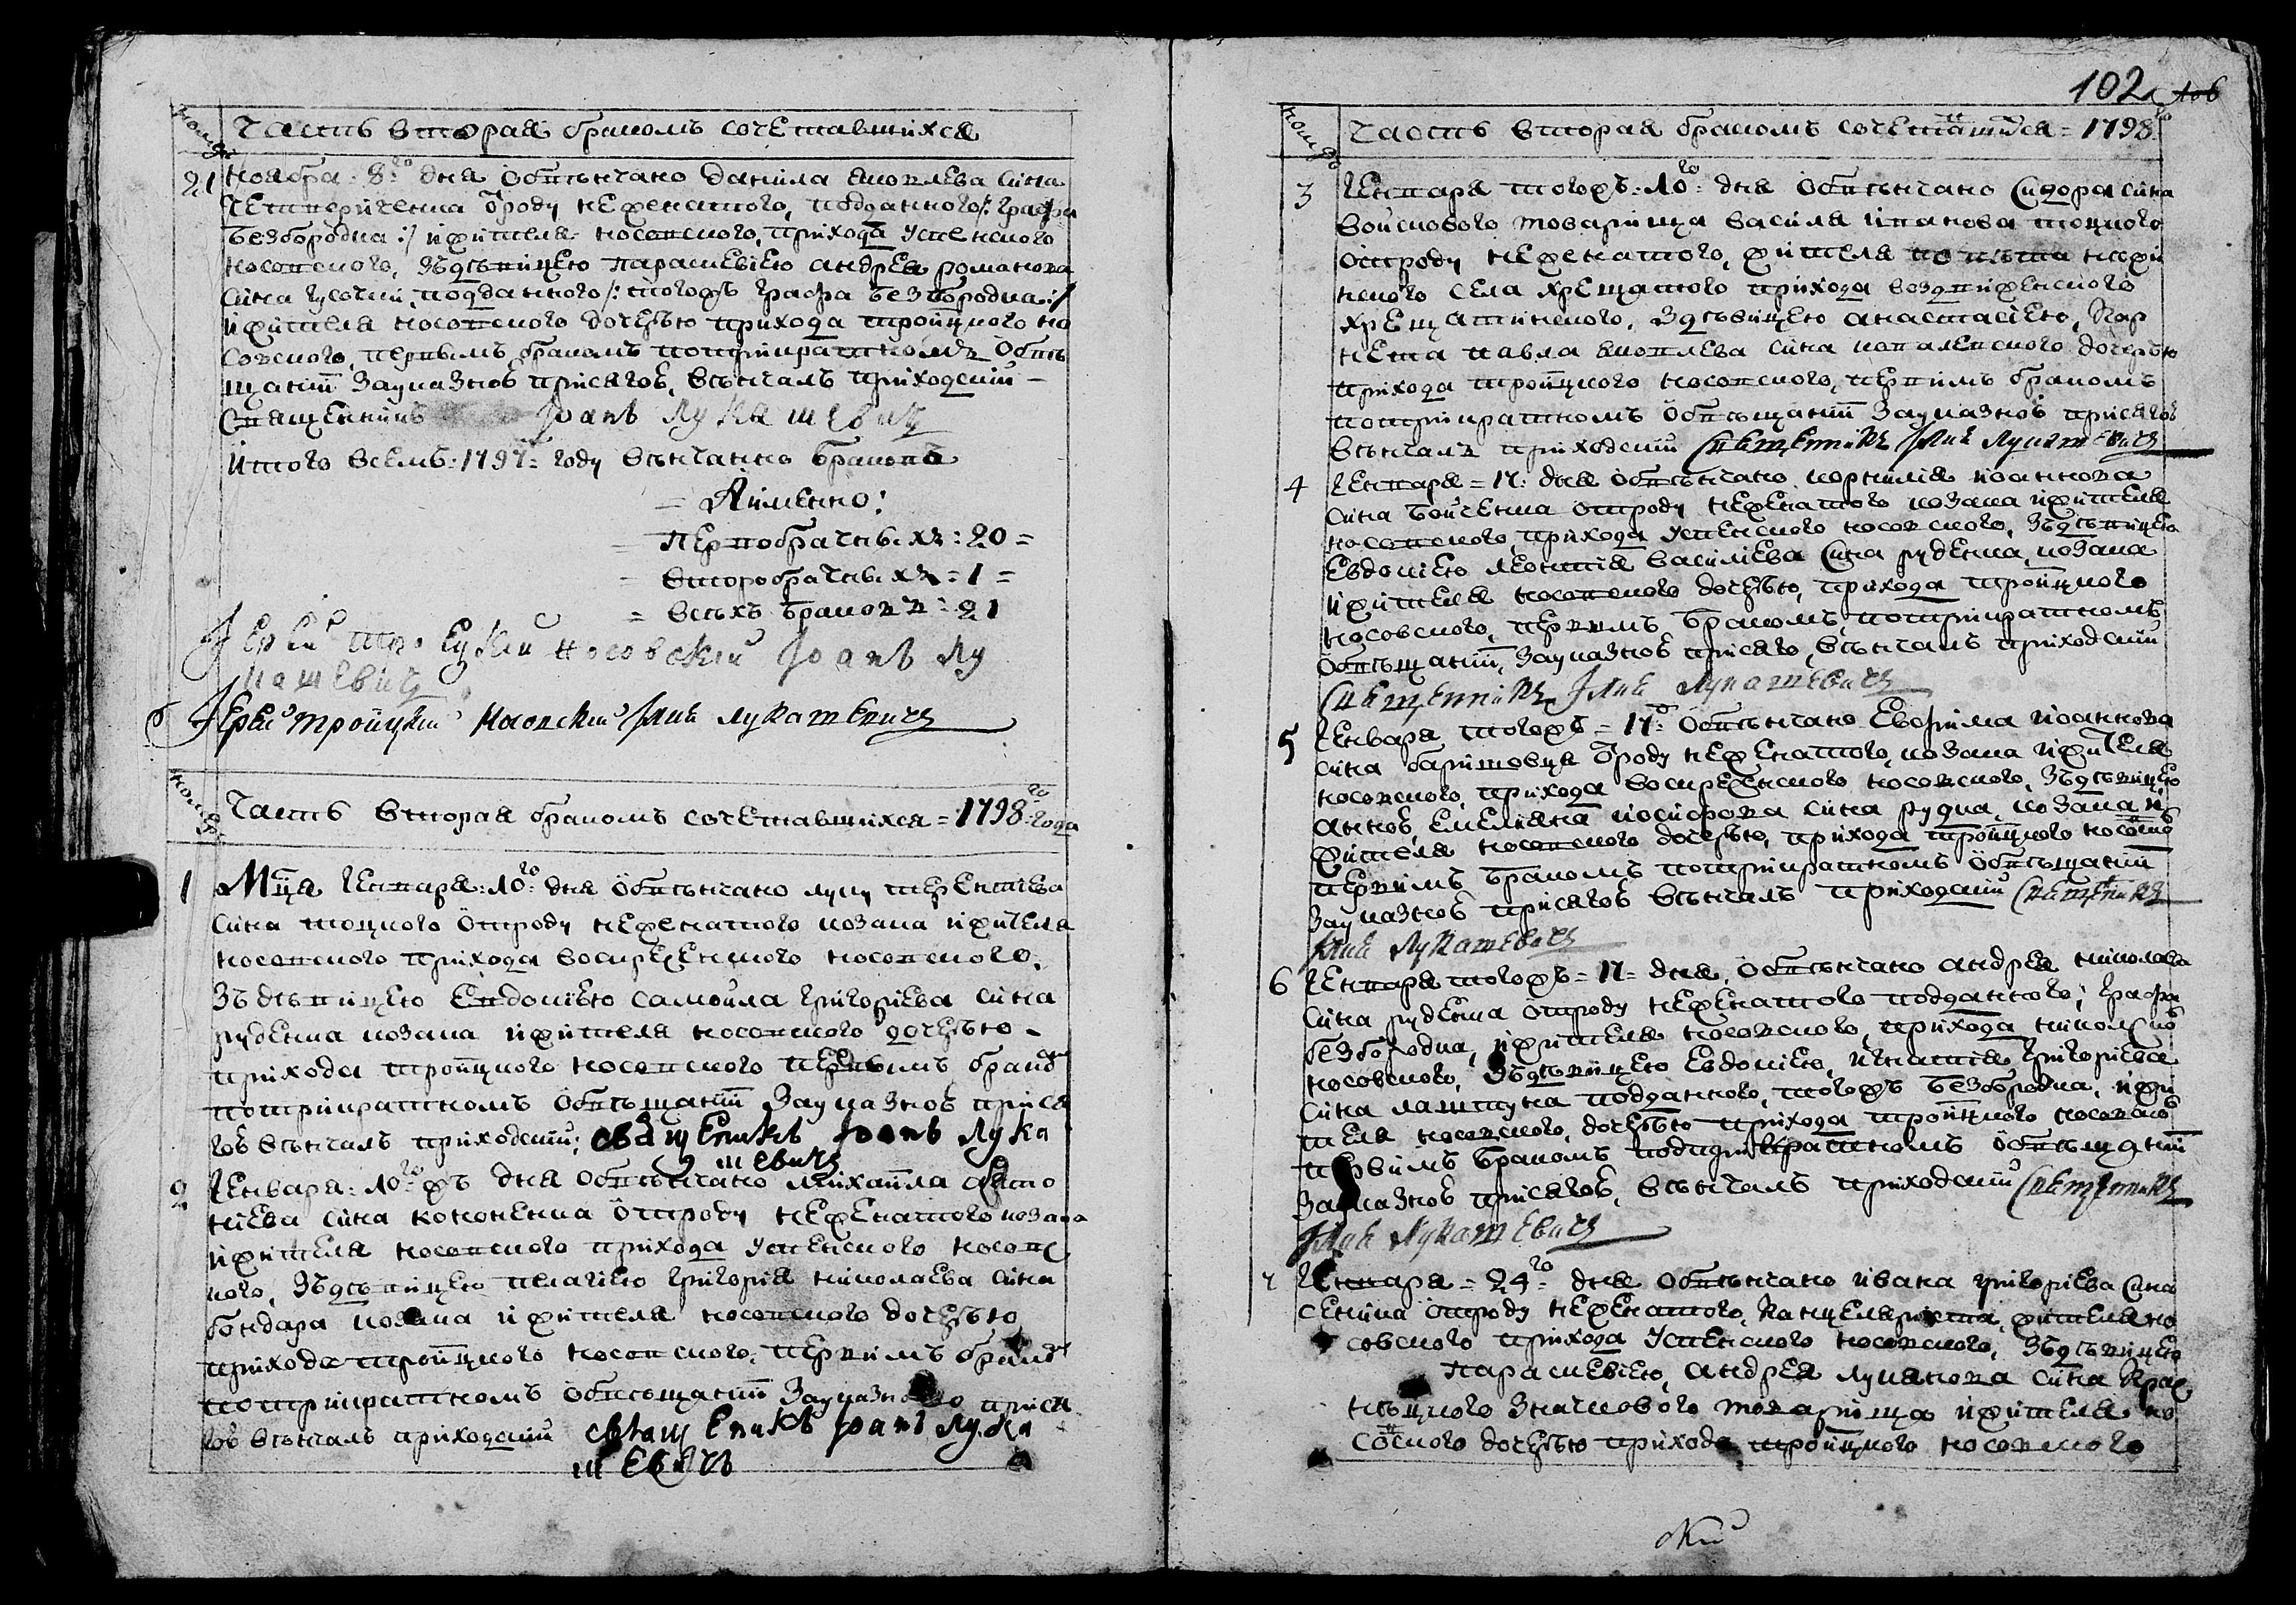 номѣръ
Часть вторая бракомъ сочетавшихся
21
Ноября 8го дня обвѣнчано Данила Яковлева сина
Четвериченка отроду неженатого, подданного /: графа
Безбородка :/ и жителя носовского, прихода Успенского
носовского, зъ дѣвицею Параскевіею Андрея Романова
сина Гусочки, подданного /: тогожъ графа Безбородка :/
и жителя носовского дочерью прихода Троицкого но
совского, первымъ бракомъ потрикратномъ обвѣ
щаніи за указною присягою, вѣнчалъ приходскій –
Священникъ Іоанъ Лукашевичъ
Итого всемъ: 1797 = году вѣнчанно браковъ
= Аименно:
= Первобрачныхъ: 20 =
= второбрачныхъ = 1 =
= всѣхъ браковъ: 21
Іерей Троецкій Носовскій Іоанъ Лу
кашевичъ
Іерей Троицкій Носовскій Іоанъ Лукашевичъ
номѣръ
Часть вторая бракомъ сочетавшихся = 1798го года
1
Мца Генваря: 10го дня обвѣнчано Луку Терентіева
сина Тоцкого отроду неженатого козака и жителя
носовского прихода Воскресенского носовского,
зъ дѣвицею Евдокіею Самоила Григоріева сина
Руденка козака и жителя носовского дочерью –
прихода Троицкого носовского первымъ бракомъ
потрикратномъ обвѣщаніи за указною прися
гою вѣнчалъ приходскій: свящ҃еникъ Іоанъ Лука
шевичъ
2
Генваря: 10го жъ дня обвѣнчано Михаила
сина Кононенка отроду неженатого козака
и жителя носовского прихода Успенского носовс
кого, зъ дѣвицею Пелагіею Григорія Николаева сина
Бондара козака и жителя носовского дочерью
прихода Троицкого носовского, первимъ бракомъ
потрикратномъ обвѣщаніи за указною прися
гою вѣнчалъ приходскій священикъ Іоанъ Лука
шевичъ
102 106
номѣръ
Часть вторая бракомъ сочетавшихся = 1798го
3
Генваря тогожъ: 10го: дня обвѣнчано Сидора сина
войскового товарища Василя Иванова Тоцкого
отроду неженатого, жителя повѣта нѣжи
нского села Хрещатого прихода Воздвиженского
Хрещатинского, зъ дѣвицею Анастасіею, кор
нета Павла Яковлева сина Ковалевского дочерью
прихода Троицкого носовского, первимъ бракомъ
потрикратномъ обвѣщаніи за указною присягою
вѣнчалъ приходскій Священникъ Іоанъ Лукашевичъ
4
Генваря = 17: дня обвѣнчано Корнилія Иоаннова
сина Бойченка отроду неженатого козака и жителя
носовского, прихода Успенского носовского, зъ дѣвицею
Евдокіею Леонтія Василіева сина Руденка, козака
и жителя носовского дочерью, прихода Троицкого
носовского, первимъ бракомъ, потрикратномъ
обвѣщаніи, за указною присяго, вѣнчалъ приходскій
Священникъ Іоанъ Лукашевичъ
5
Генваря тогожъ = 17го обвѣнчано Евфима Иоаннова
сина отроду неженатого, козака и жителя
носовского, прихода Воскресенского носовского, зъ дѣвицею
Анною, Емеліана Иосифова сина Рудка, козака и
жителя носовского дочерью, прихода Троицкого носовско
первимъ бракомъ потрикратномъ обвѣщаніи
за указною присягою вѣнчалъ приходскій Священикъ
Іоанъ Лукашевичъ
6
Генваря тогожъ = 17 = дня, обвѣнчано Андрея Николаева
сина Руденка отроду неженатого подданного, графа
Безбородка, и жителя носовского, прихода
носовского, зъ дѣвицею Евдокіею, Игнатія Григоріева
сина подданного, тогожъ Безбородка, и жи
теля носовского, дочерью прихода Троицкого носовского
первимъ бракомъ обвѣщаніи
за указною присягою, вѣнчалъ приходскій Священникъ
Іоанъ Лукашевичъ
7
Генваря = 24го дня обвѣнчано Ивана Григоріева сина
отроду неженатого, канцеляриста, жителя но
совского прихода Успенского носовского, зъ дѣвицею
Параскевіею, Андрея Лукянова сина
значкового товарища и жителя но
совского дочерью прихода Троицкого носовского